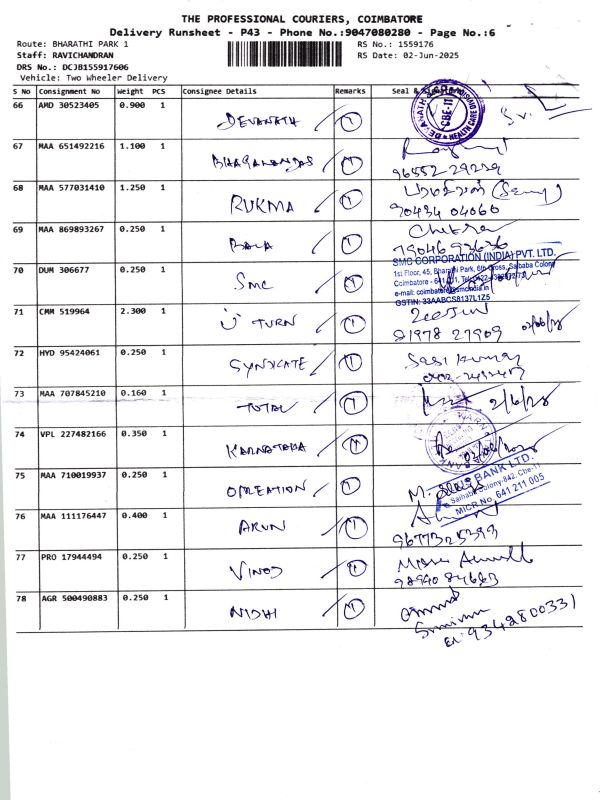 THE PROFESSIONAL COURIERS, COIMBATORE
Delivery Runsheet - P43 - Phone No.:9047080280 - Page No.:6
Route: BHARATHI PARK 1
RS No.: 1559176
Staff: RAVICHANDRAN
RS Date: 02-Jun-2025
DRS No.: DCJB155917606
Vehicle: Two Wheeler Delivery
S No Consignment No Weight PCS Consignee Details Remarks Seal &
66 AMD 30523405 0.900 1 DEVANATH 1
67 MAA 651492216 1.100 1 1
68 MAA 577031410 1.250 1 RUKMA 1
90434 04060
69 MAA 869893267 0.250 1 BALA 1 Chitra
SMG CORPORATION (INDIA) PVT. LTD.
1st Floor, 45, Bharathi Park, 6th Cross, Saibaba Colony
70 DUM 306677 0.250 1 SMC 1
GSTIN: 33AABCS8137L1Z5
71 CMM 519964 2.300 1 U TURN 1
81978 27909 02/06/25
72 HYD 95424061 0.250 1 SYNDICATE 1 Sasi Kumar
73 MAA 707845210 0.160 1 TOTAL 1 2/6/25
74 VPL 227482166 0.350 1 KARNATAKA 1
BANK LTD.
75 MAA 710019937 0.250 1 1
Saibaba Colony-642, Cbe-11
MICR No. 641 211 005
76 MAA 111176447 0.400 1 ARUN 1
9677325399
77 PRO 17944494 0.250 1 VINOD 1
78 AGR 500490883 0.250 1 NIDHI 1
9342800331